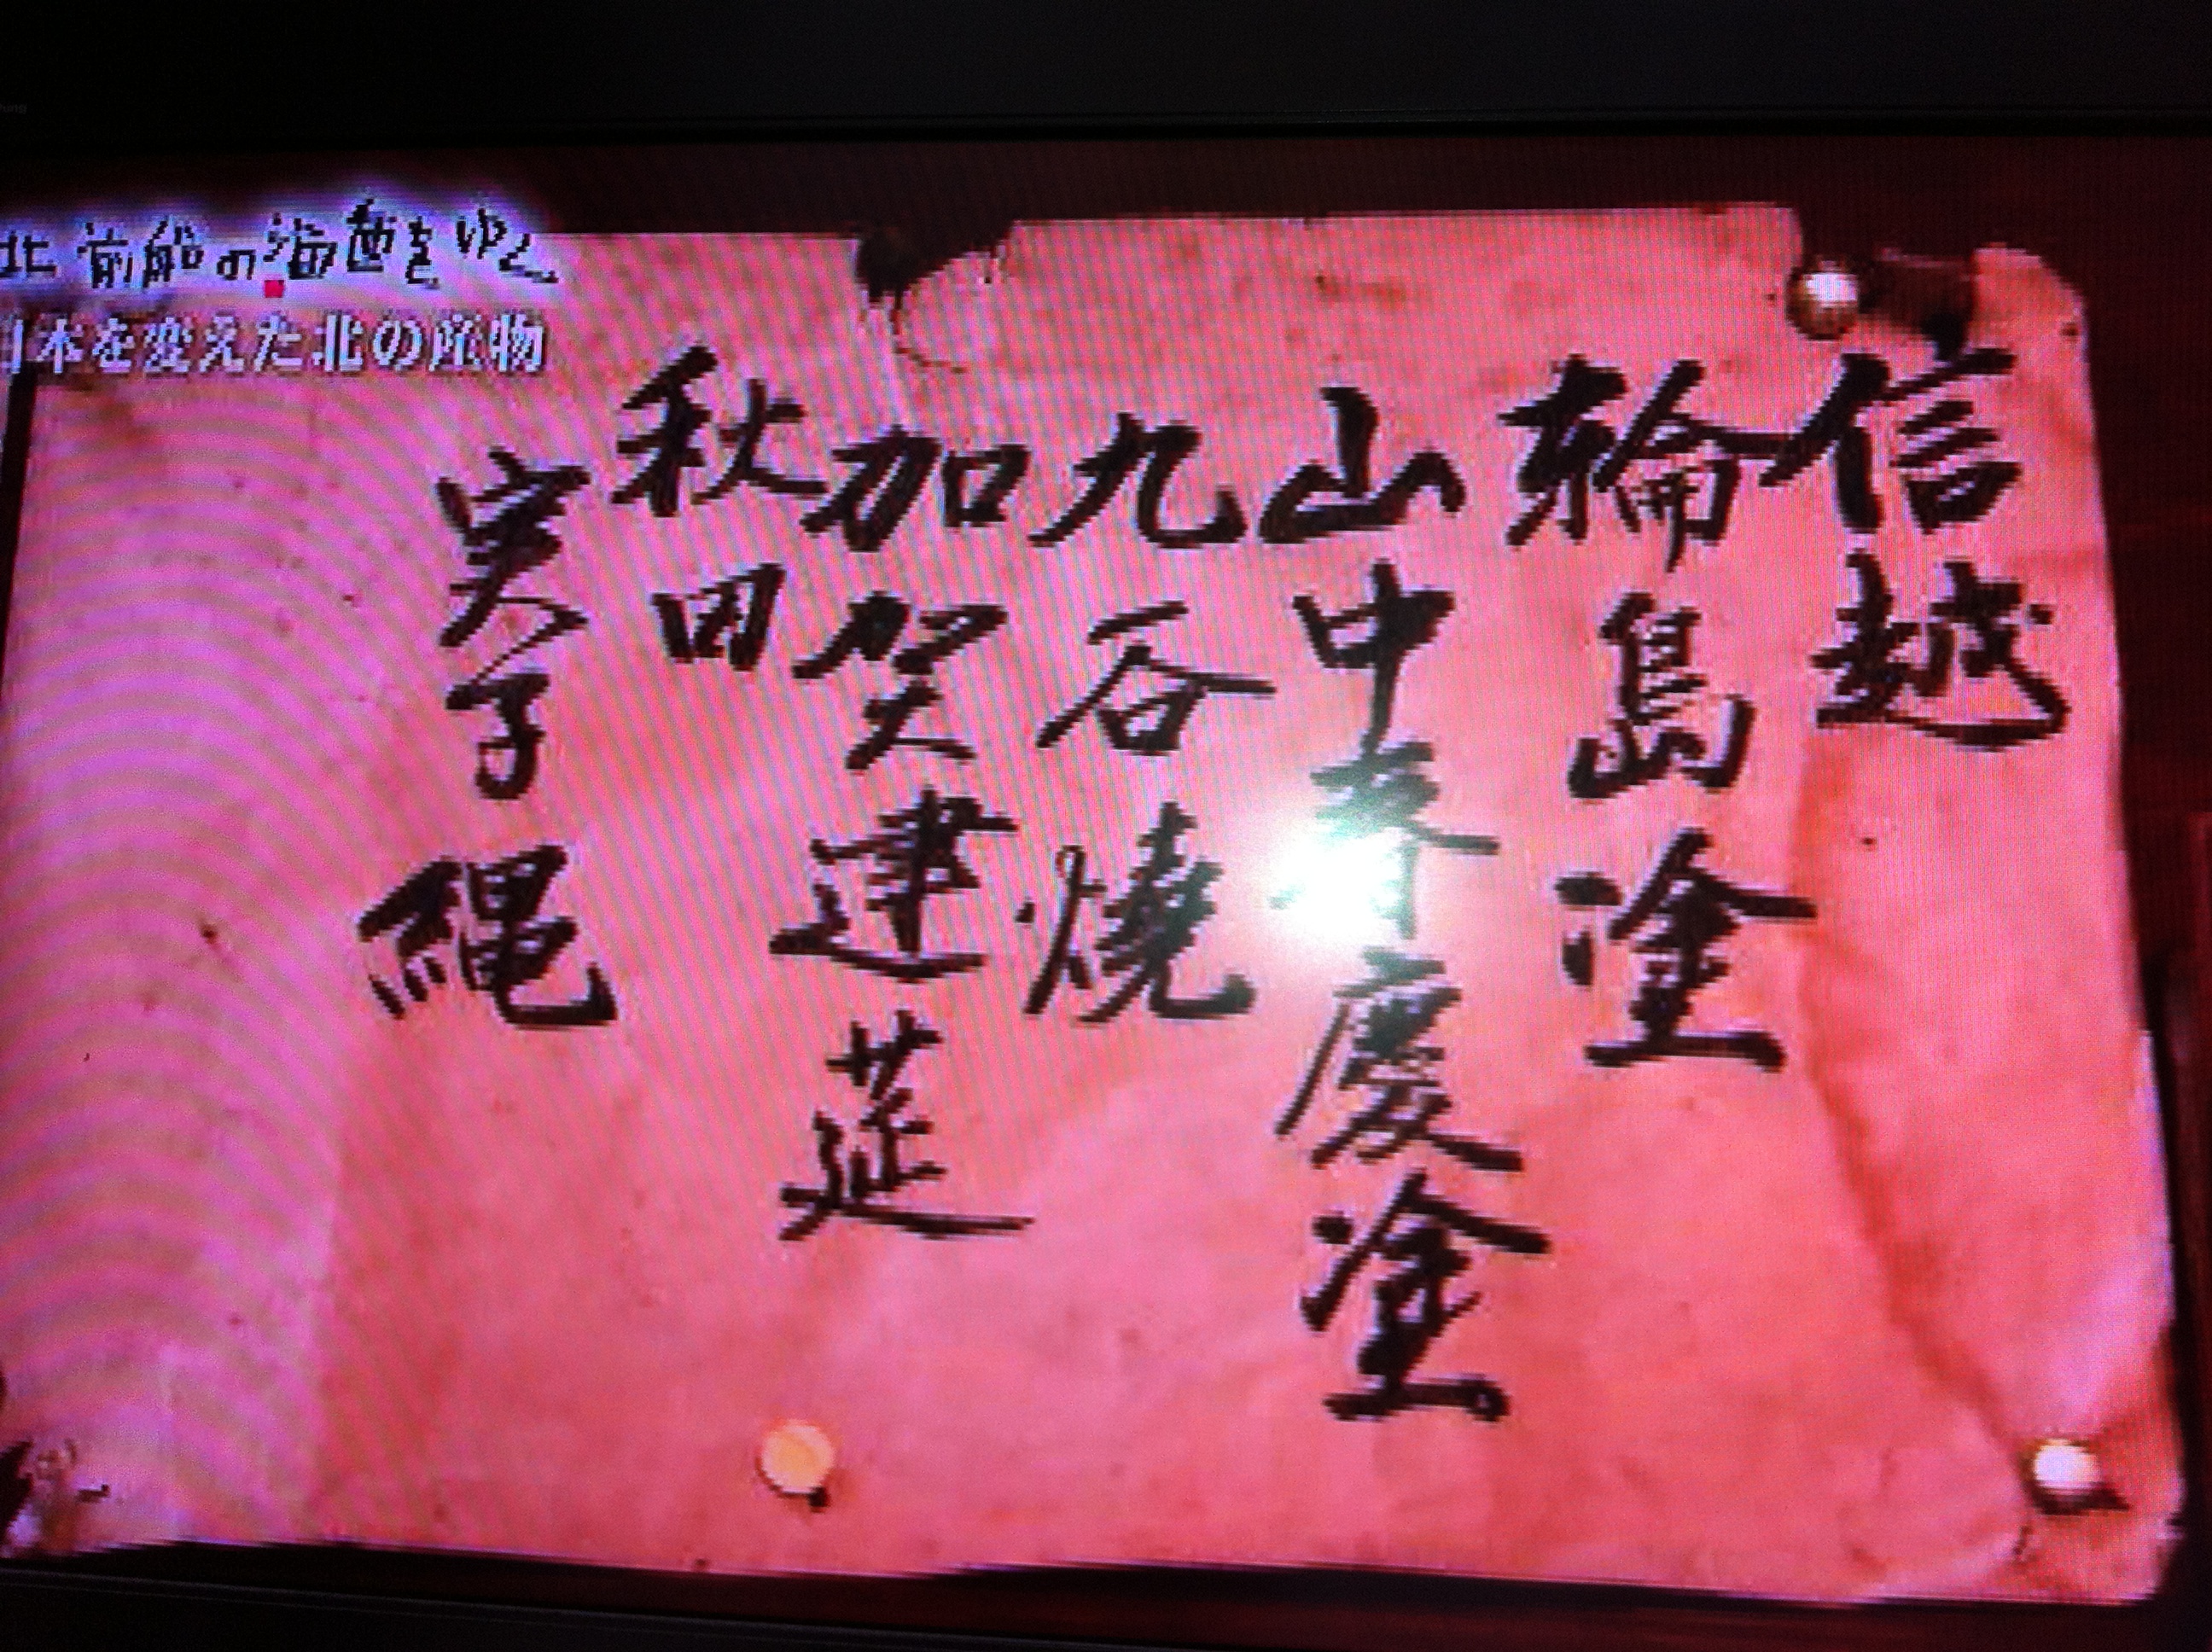 北前船の海道をゆく
日本を変えた北の産物
信越
輪島塗
山中春慶塗
九谷燒
加賀建莚
秋田
実子縄